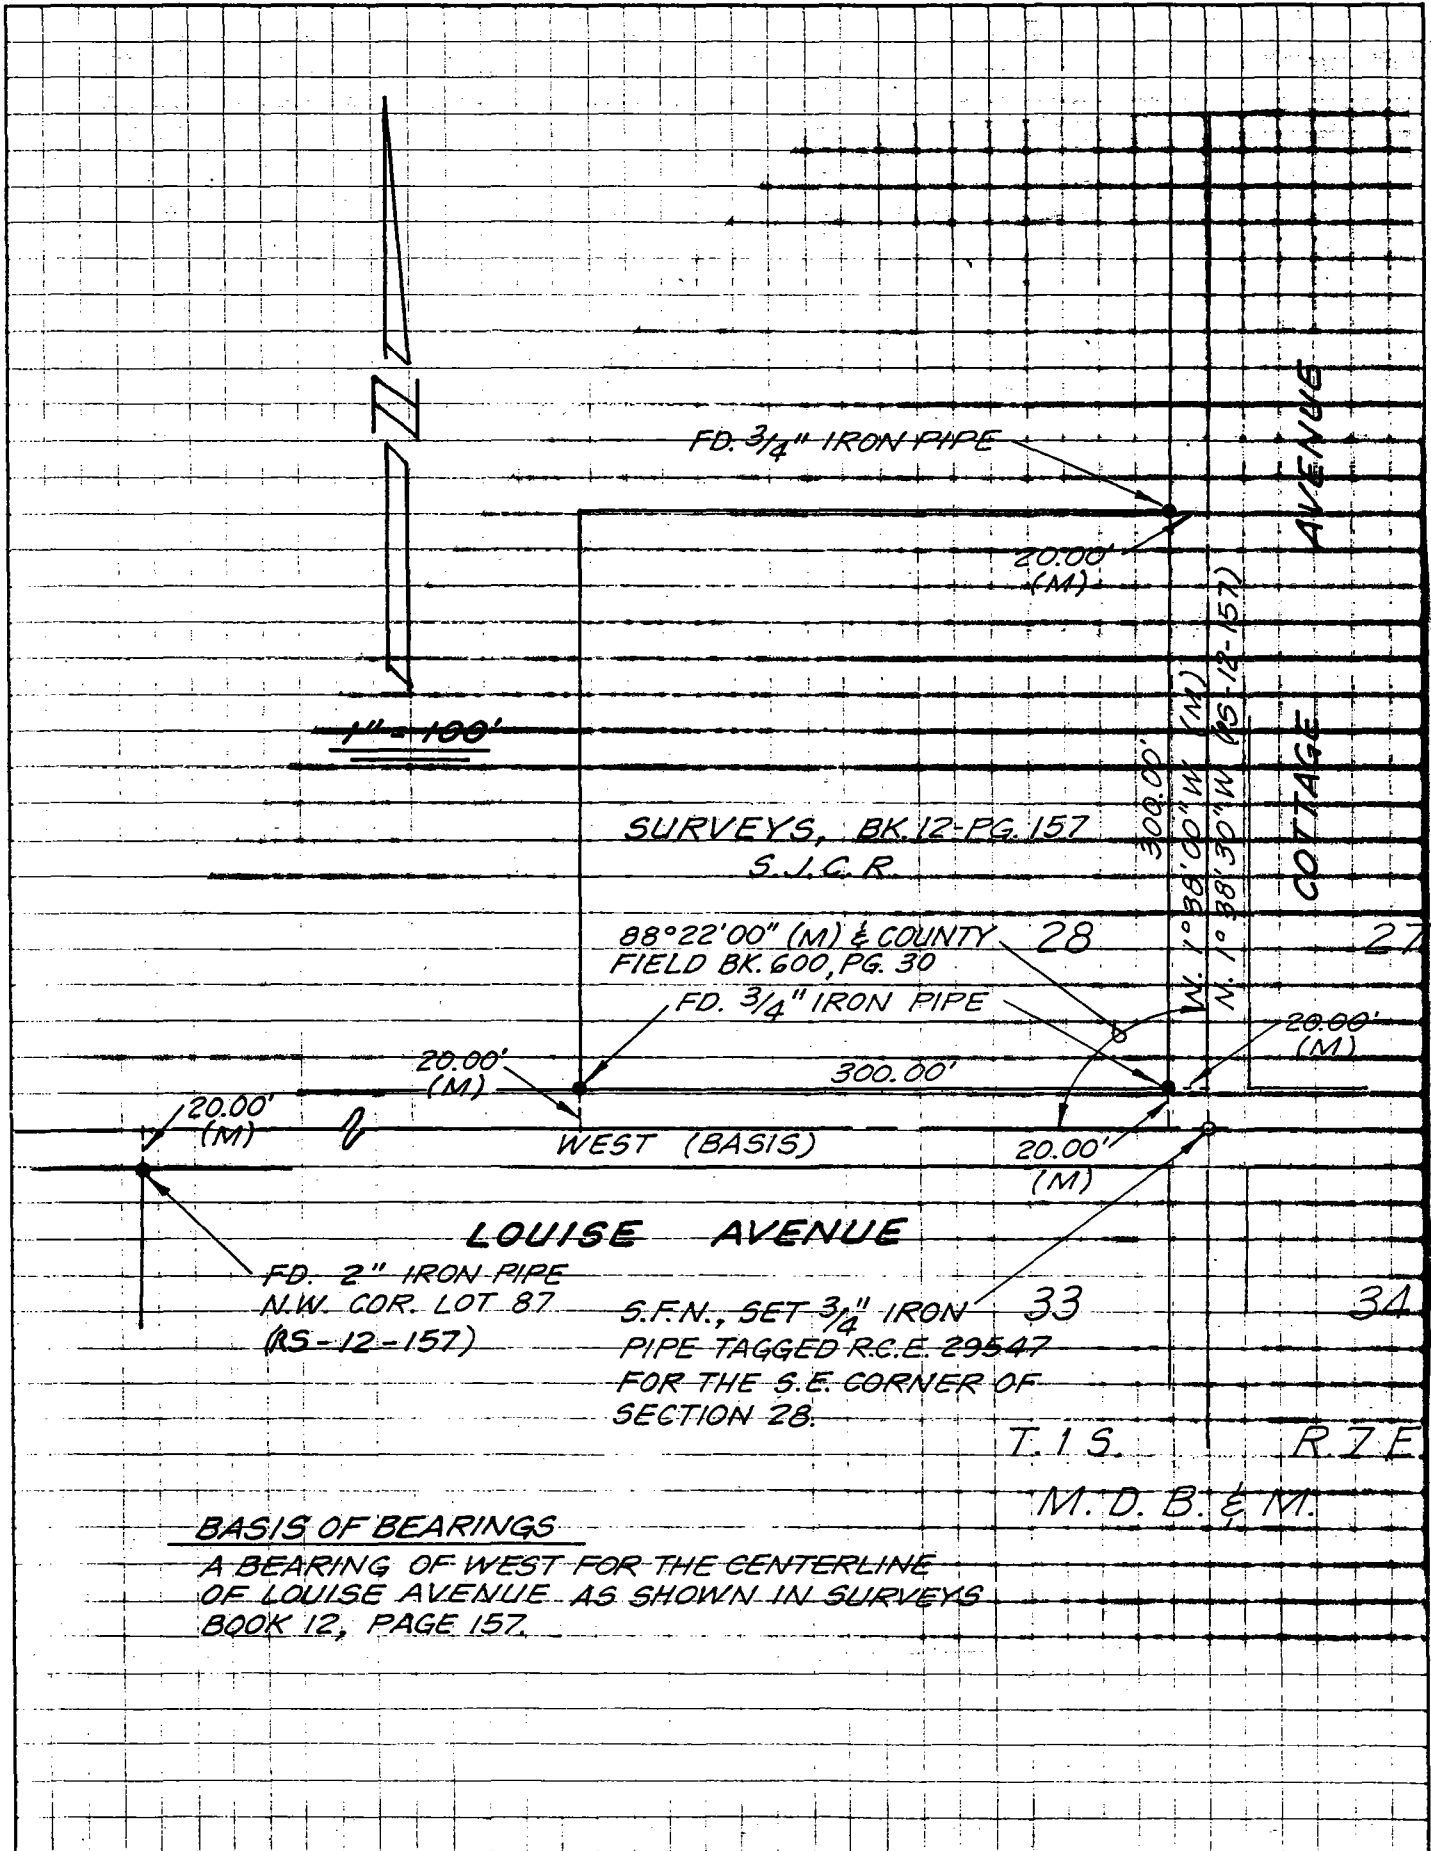 FD. 3/4" IRON PIPE
20.00'
(M)
AVENUE
COTTAGE
1" = 100'
300.00'
N. 1° 38' 00" W (M)
N. 1° 38' 30" W (RS-12-157)
SURVEYS, BK. 12-PG. 157
S.J.C.R.
88°22'00" (M) & COUNTY
FIELD BK. 600, PG. 30
28
27
FD. 3/4" IRON PIPE
20.00'
(M)
20.00'
(M)
300.00'
20.00'
(M)
WEST (BASIS)
20.00'
(M)
LOUISE AVENUE
FD. 2" IRON PIPE
N.W. COR. LOT 87
(RS-12-157)
S.F.N., SET 3/4" IRON
PIPE TAGGED R.C.E. 29547
FOR THE S.E. CORNER OF
SECTION 28.
33
34
T. 1 S. R. 7 E.
M. D. B. & M.
BASIS OF BEARINGS
A BEARING OF WEST FOR THE CENTERLINE
OF LOUISE AVENUE AS SHOWN IN SURVEYS
BOOK 12, PAGE 157.